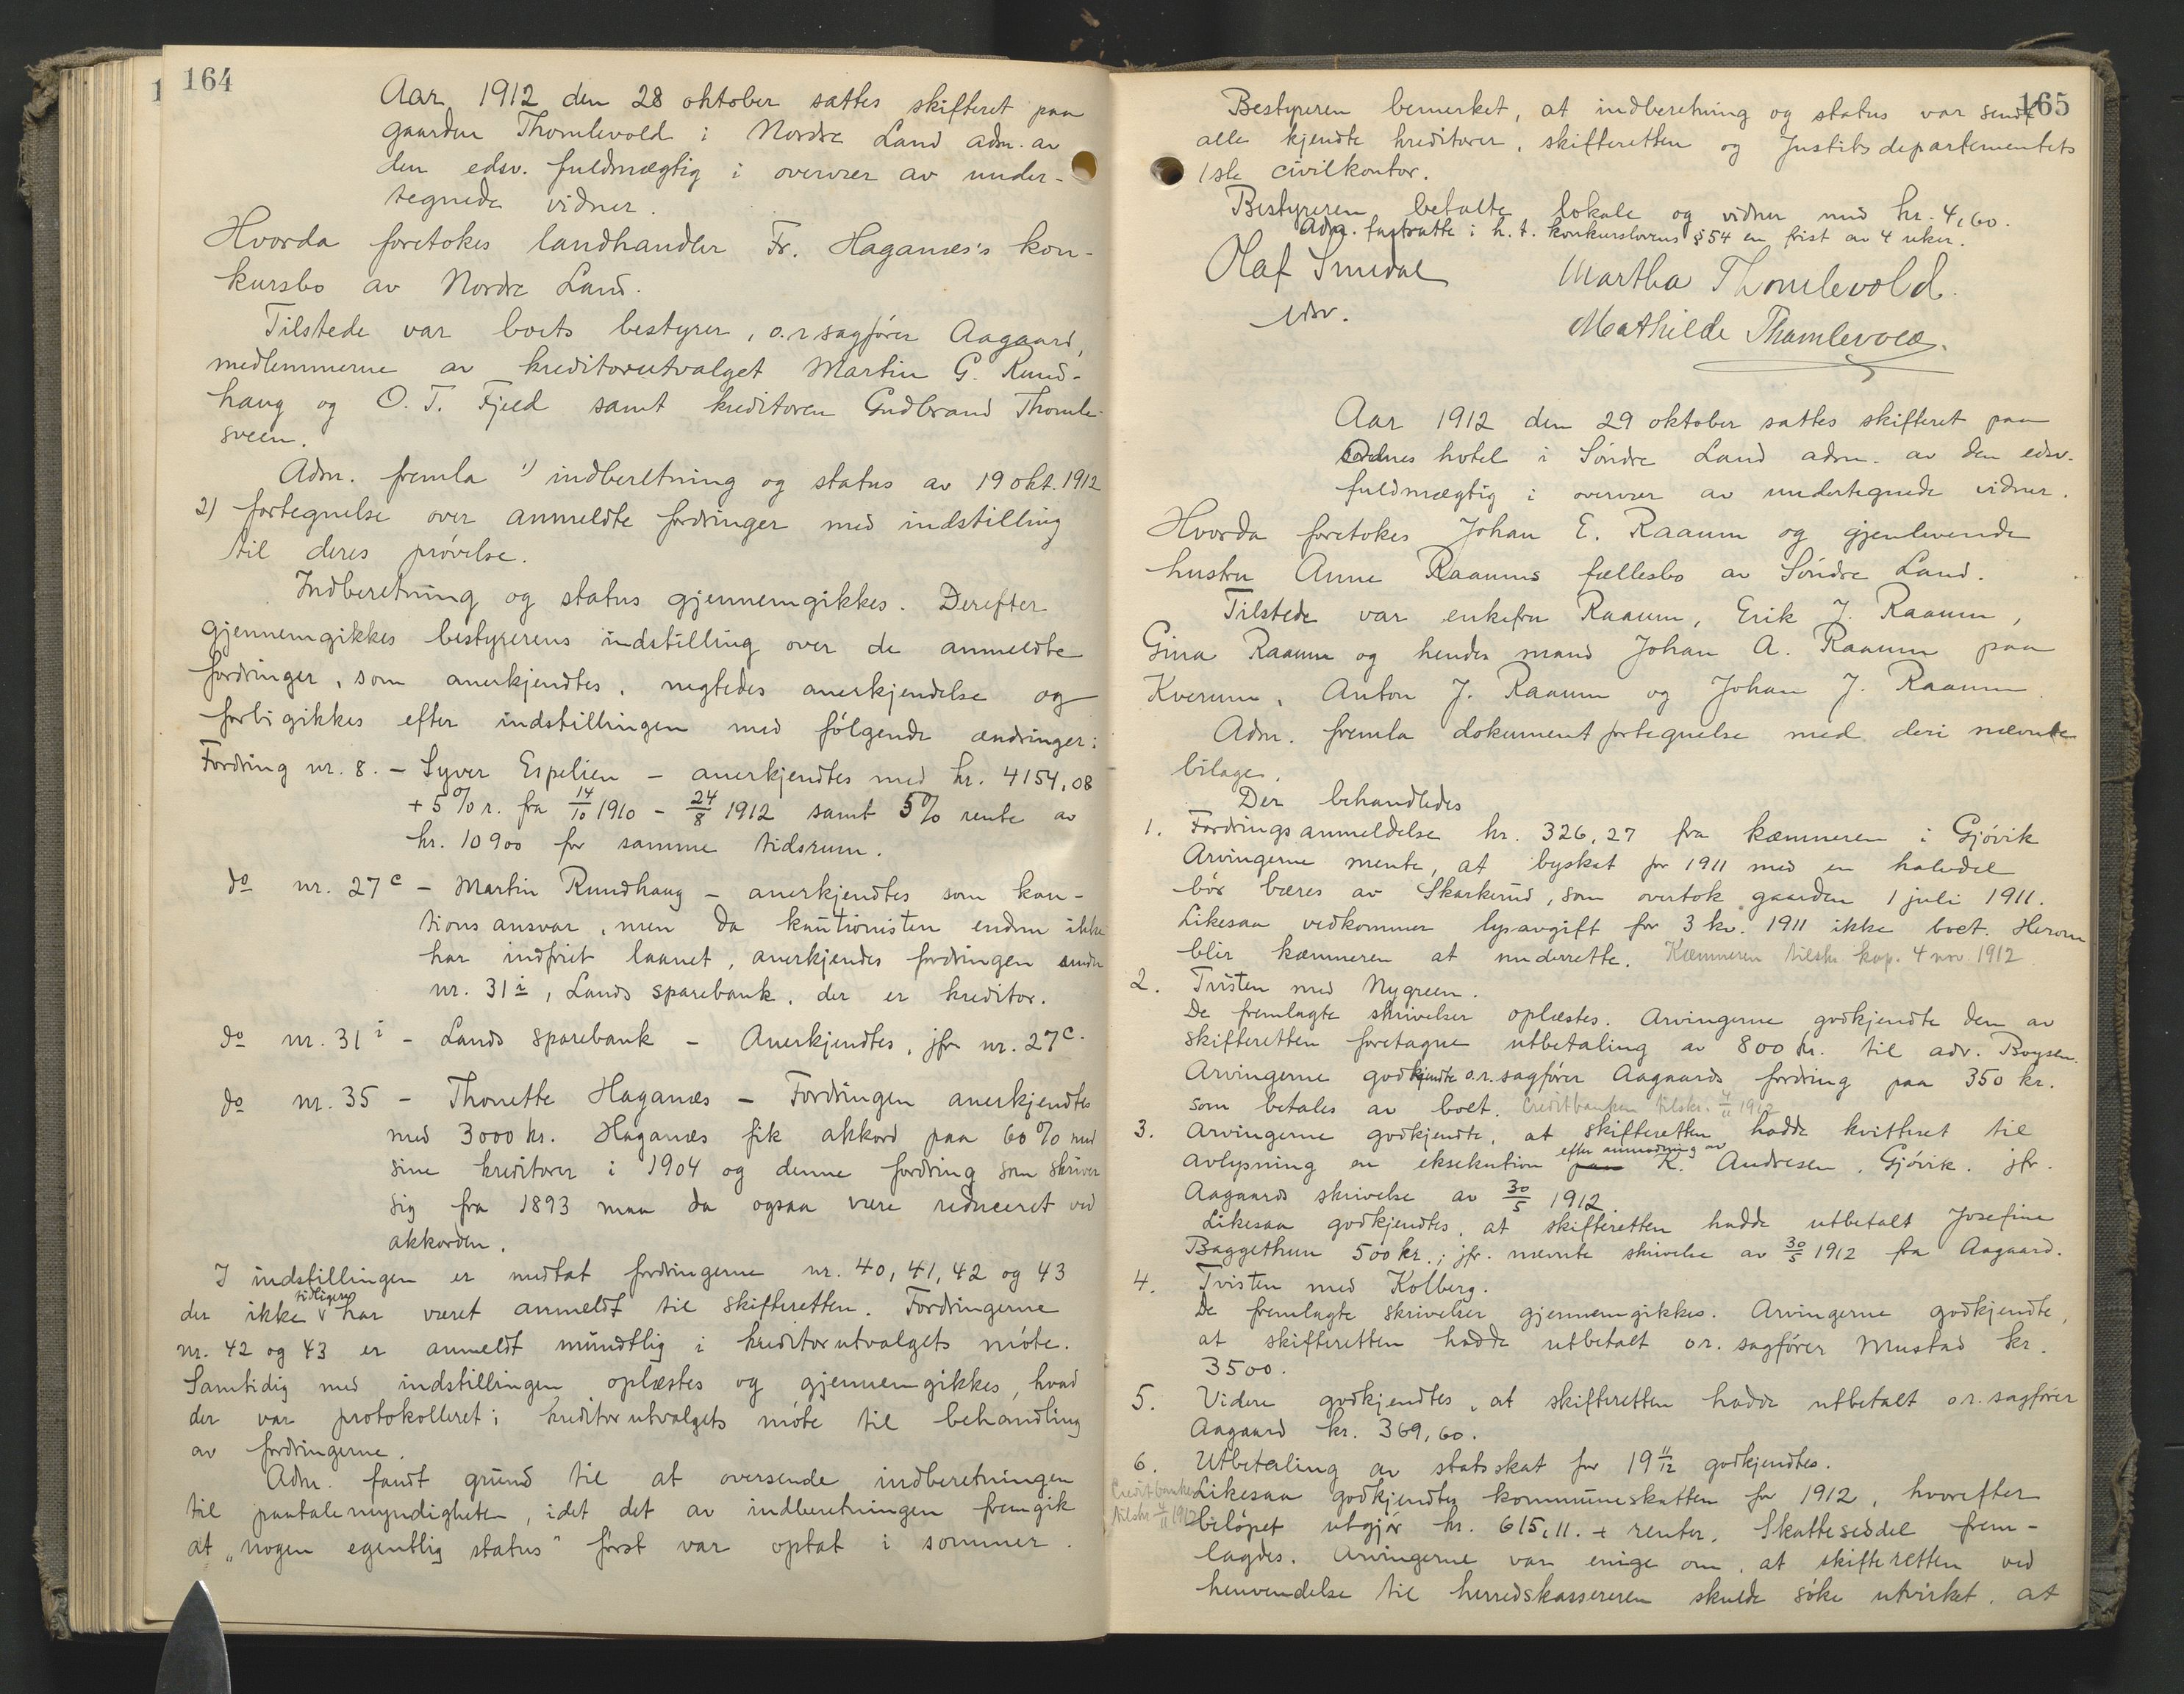 164
Aar 1912 den 28 oktober sattes skifteret paa
gaarden Thomlevold i Nordre Land adm. av
den edsv. fuldmægtig i overvær av under-
tegnede vidner.
Hvorda foretokes landhandler Fr. Haganæs's kon-
kursbo av Nordre Land.
Tilstede var boets bestyrer, o.r.sagfører Aagaard,
medlemmerne av kreditorutvalget Martin G. Rund-
haug og O. T. Fjeld samt kreditoren Gudbrand Thomle-
sveen.
Adm. fremla 1) indberetning og status av 19 okt. 1912
2) fortegnelse over anmeldte fordringer med indstilling
til deres prøvelse.
Indberetning og status gjennemgikkes. Derefter
gjennemgikkes bestyrerens indstilling over de anmeldte
fordringer, som anerkjendtes, negtedes anerkjendelse og
forbigikkes efter indstillingen med følgende ændringer:
Fordring nr. 8. - Syver Espelien - anerkjendtes med kr. 4154,08
+ 5% r. fra 14/10 1910 - 24/8 1912 samt 5% rente av
kr. 10900 for samme tidsrum.
do nr. 27c - Martin Rundhaug - anerkjendtes som kau-
tionsansvar, men da kautionisten endnu ikke
har indfriet laanet, anerkjendes fordringen under
nr. 31i, Lands sparebank, der er kreditor.
do nr. 31i - Lands sparebank - Anerkjendtes, jfr. nr. 27c.
do nr. 35 - Thonette Haganæs - Fordringen anerkjendtes
med 3000 kr. Haganæs fik akkord paa 60% med
sine kreditorer i 1904 og denne fordring som skriver
sig fra 1893 maa da ogsaa være reduceret ved
akkorden.
I indstillingen er medtat fordringerne nr. 40, 41, 42 og 43
der ikke tidligere har været anmeldt til skifteretten. Fordringerne
nr. 42 og 43 er anmeldt mundtlig i kreditorutvalgets møte.
Samtidig med indstillingen oplæstes og gjennemgikkes, hvad
der var protokolleret i kreditorutvalgets møte til behandling
av fordringerne.
Adm. fandt grund til at oversende indberetningen
til paatalemyndigheten, idet det av indberetningen fremgik
at "nogen egentlig status" først var optat i sommer.
165
Bestyreren bemerket, at indberetning og status var sendt
alle kjendte kreditorer, skifteretten og Justitsdepartementets
1ste civilkontor.
Bestyreren betalte lokale og vidner med kr. 4,60.
Adm. fastsatte i h. t. konkurslovens § 54 en frist av 4 uker.
Olaf Smedal Martha Thomlevold.
edsv.
Mathilde Thomlevold.
Aar 1912 den 29 oktober sattes skifteret paa
hotel i Søndre Land adm. av den edsv.
fuldmægtig i overvær av undertegnede vidner.
Hvorda foretokes Johan E. Raaum og gjenlevende
hustru Anne Raaums fællesbo av Søndre Land.
Tilstede var enkefru Raaum, Erik J. Raaum,
Gina Raaum og hendes mand Johan A. Raaum paa
Kverum, Anton J. Raaum og Johan J. Raaum.
Adm. fremla dokumentfortegnelse med deri nævnte
bilage.
Der behandledes
1. Fordringsanmeldelse kr. 326,27 fra kæmneren i Gjøvik
Arvingerne mente, at byskat for 1911 med en halvdel
bør bæres av Skarkerud, som overtok gaarden 1 juli 1911.
Likesaa vedkommer lysavgift for 3 kv. 1911 ikke boet. Herom
blir kæmneren at underrette. Kæmneren tilskr. kop. 4 nov. 1912
2. Tvisten med Nygreen.
De fremlagte skrivelser oplæstes. Arvingerne godkjendte den av
skifteretten foretagne utbetaling av 800 kr. til adv. Boysen.
Arvingerne godkjendte o.r.sagfører Aagaards fordring paa 350 kr.
som betales av boet. Creditbanken tilskr. 4/11 1912
3. Arvingerne godkjendte, at skifteretten hadde kvitteret til
avlysning en eksekution efter anmodning av K. Andresen, Gjøvik. jfr.
Aagaards skrivelse av 30/5 1912.
Likesaa godkjendtes, at skifteretten hadde utbetalt Josefine
Baggethun 500 kr.; jfr. nævnte skrivelse av 30/5 1912 fra Aagaard.
4. Tvisten med Kolberg.
De fremlagte skrivelser gjennemgikkes. Arvingerne godkjendte,
at skifteretten hadde utbetalt o.r. sagfører Mustad kr.
3500.
5. Videre godkjendtes, at skifteretten hadde utbetalt o.r. sagfører
Aagaard kr. 369,60.
6. Utbetaling av statsskat for 19 11/12 godkjendtes.
Creditbanken tilskr. 4/11 1912
Likesaa godkjendtes kommuneskatten for 1912, hvorefter
beløpet utgjør kr. 615,11. + renter. Skatteseddel frem-
lagdes. Arvingerne var enige om, at skifteretten ved
henvendelse til herredskassereren skulde søke utvirket, at